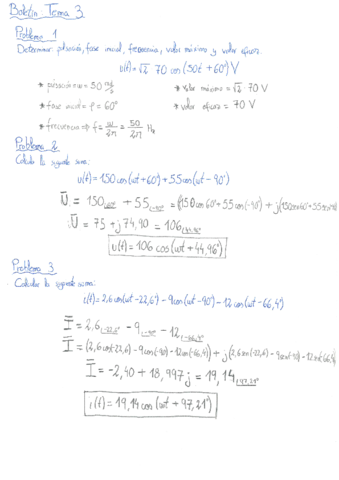 Boletín Tema 3
Problema 1
Determinar pulsación, fase inicial, frecuencia, valor máximo y valor eficaz.
v(t) = √2 70 cos(50t + 60°) V
* pulsación ⇒ w = 50 rad/s
* valor máximo = √2 70 V
* fase inicial = φ = 60°
* valor eficaz = 70 V
* frecuencia ⇒ f = w/2π = 50/2π Hz
Problema 2
Calcula la siguiente suma:
v(t) = 150 cos(wt + 60°) + 55 cos(wt - 90°)
U = 150∠60° + 55∠-90° = (150 cos 60° + 55 cos(-90°)) + j(150 sen 60° + 55 sen(-90))
U = 75 + j74,90 = 106∠44,96°
v(t) = 106 cos(wt + 44,96°)
Problema 3
· Calcular la siguiente suma:
i(t) = 2,6 cos(wt - 22,6°) - 9 cos(wt - 90°) - 12 cos(wt - 66,4°)
I = 2,6∠-22,6° - 9∠-90° - 12∠-66,4°
I = (2,6 cos(-22,6) - 9 cos(-90) - 12 cos(-66,4)) + j(2,6 sen(-22,6) - 9 sen(-90) - 12 sen(-66,4))
I = -2,40 + 18,997j = 19,14∠97,21°
i(t) = 19,14 cos(wt + 97,21°)